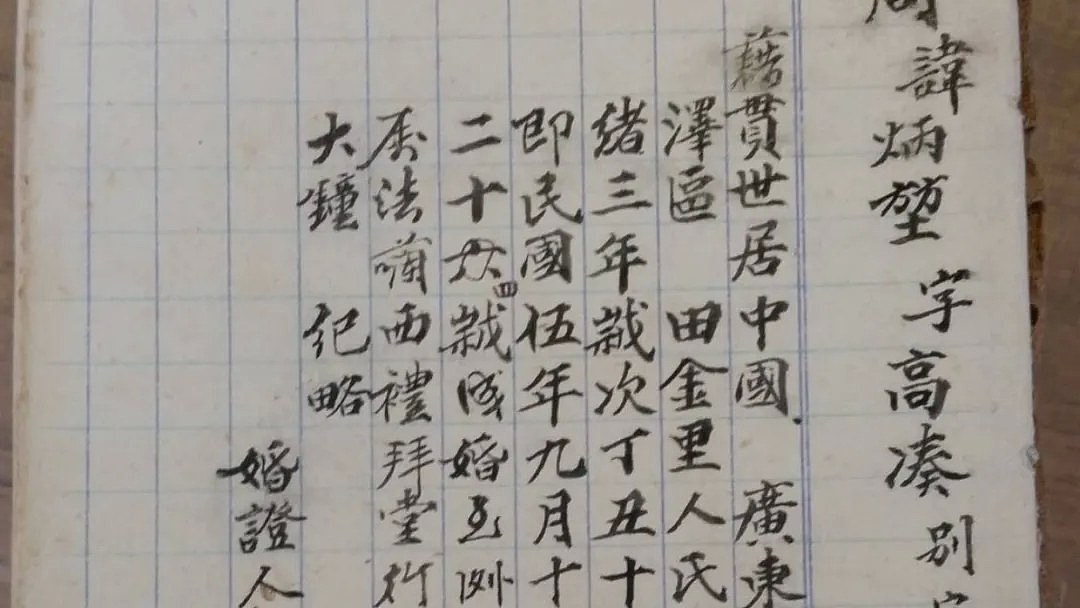 諱炳堃 字高湊 別
籍貫世居中國 廣東
澤區 田金里人氏
緒三年歲次丁丑十
即民國伍年九月十
二十四歲成婚至例
法蘭西禮拜堂行
大鐘 纪略
婚證人